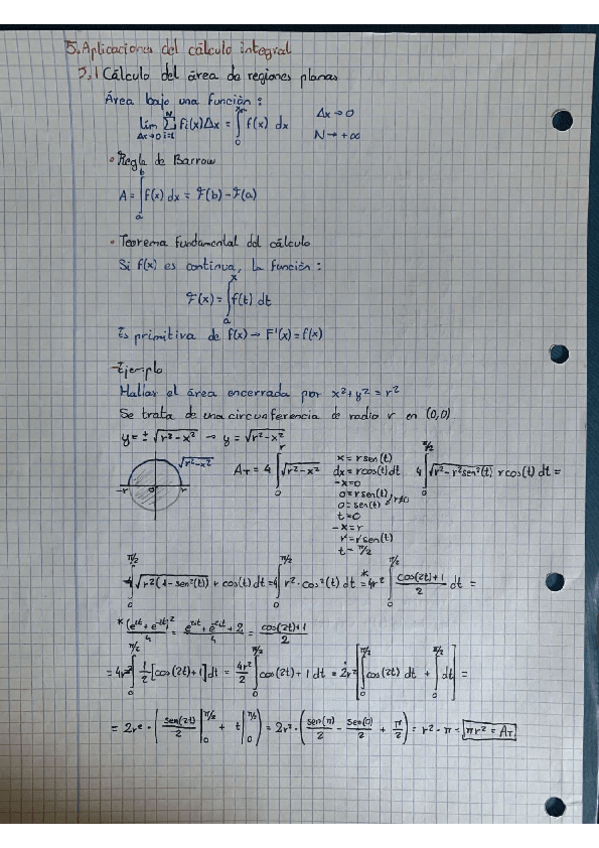 5. Aplicaciones del cálculo integral
5.1 Cálculo del área de regiones planas
Área bajo una función:
lim Σ fi(x)Δx = ∫ f(x) dx Δx→0
Δx→0 i=1 N 0 N→+∞
• Regla de Barrow
A = ∫_a^b f(x) dx = F(b) - F(a)
• Teorema fundamental del cálculo
Si f(x) es continua, la función:
F(x) = ∫_a^x f(t) dt
Es primitiva de f(x) → F'(x) = f(x)
- Ejemplo
Hallar el área encerrada por x² + y² = r²
Se trata de una circunferencia de radio r en (0,0).
y = ± √(r²-x²) → y = √(r²-x²)
√(r²-x²)
-r 0 r
A_T = 4 ∫_0^r √(r²-x²)
x = r sen(t)
dx = r cos(t) dt
-x=0
0 = r sen(t)
0 = sen(t) r≠0
t=0
-x=r
r = r sen(t)
t = π/2
4 ∫_0^{π/2} √(r²-r²sen²(t)) r cos(t) dt =
4 ∫_0^{π/2} √(r²(1-sen²(t))) r cos(t) dt = 4 ∫_0^{π/2} r² · cos²(t) dt =* 4r² ∫_0^{π/2} (cos(2t)+1)/2 dt =
* (e^{it} + e^{-it})²/4 = (e^{2it} + e^{-2it} + 2)/4 = (cos(2t)+1)/2
= 4r² ∫_0^{π/2} 1/2 [cos(2t)+1] dt = 4r²/2 ∫_0^{π/2} cos(2t)+1 dt = 2r² [∫_0^{π/2} cos(2t) dt + ∫_0^{π/2} dt] =
= 2r² · (sen(2t)/2 |_0^{π/2} + t |_0^{π/2}) = 2r² · (sen(π)/2 - sen(0)/2 + π/2) = r² · π = πr² = A_T